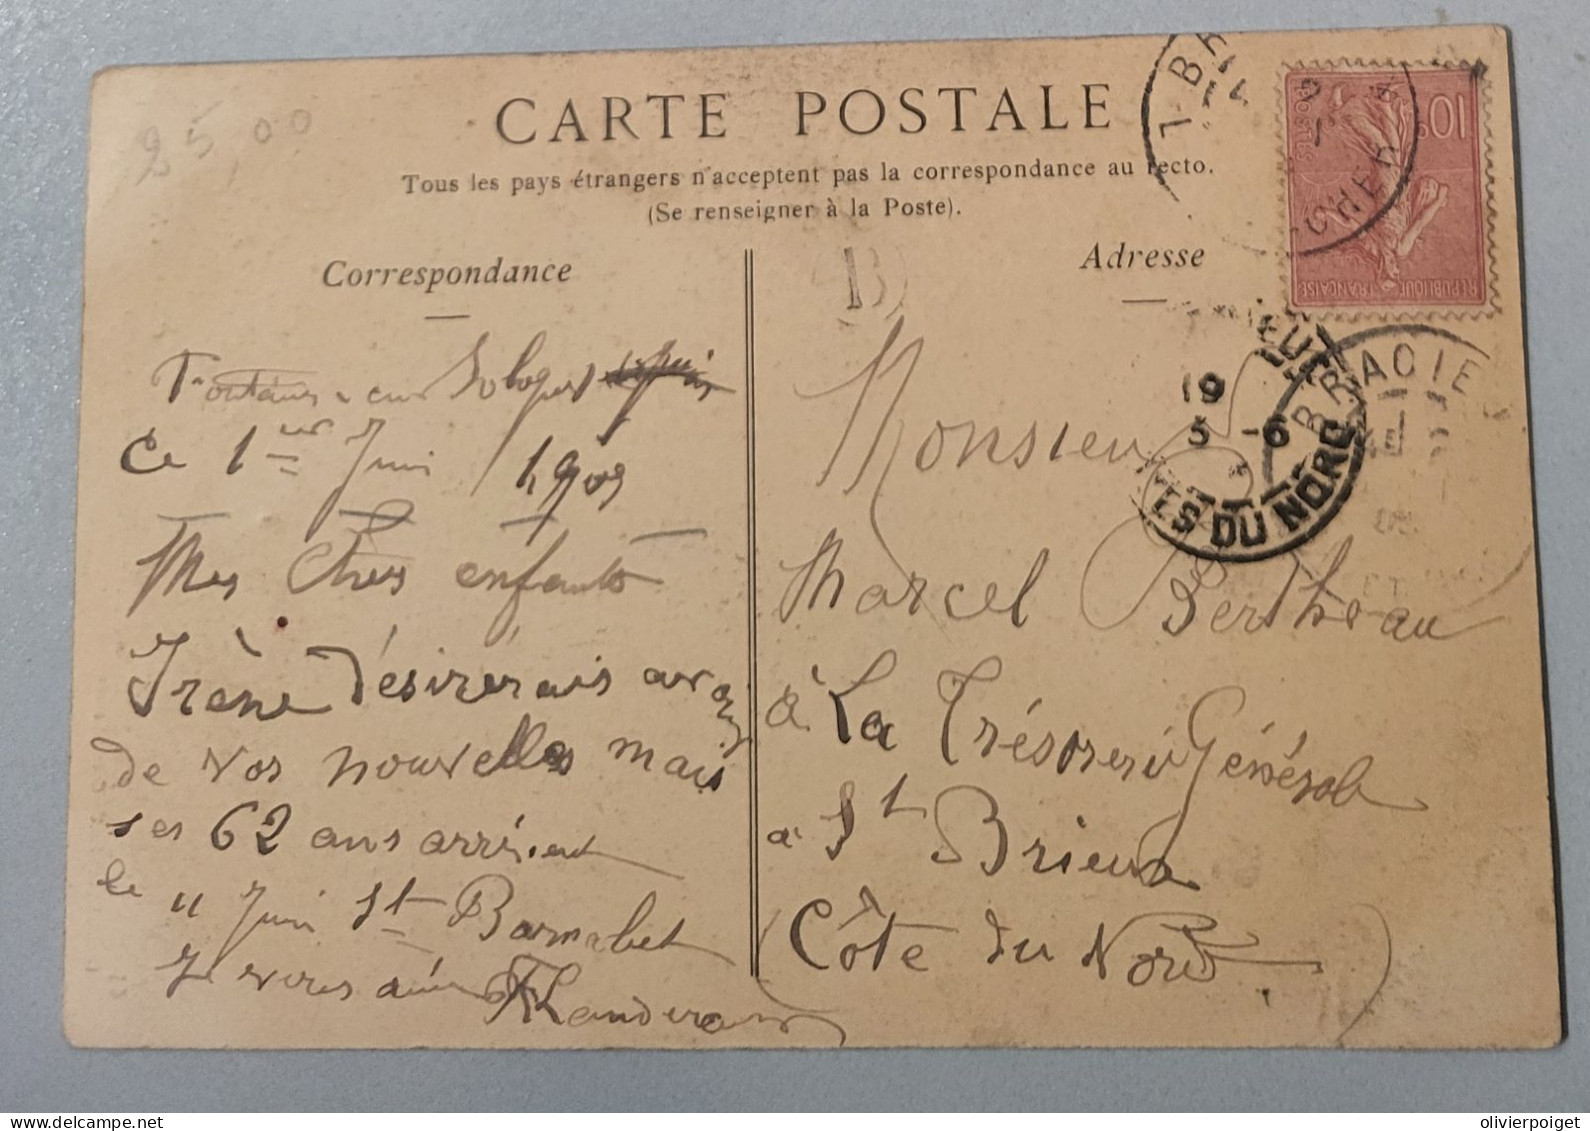 25,00
CARTE POSTALE
Tous les pays étrangers n'acceptent pas la correspondance au recto.
(Se renseigner à la Poste).
Correspondance
Fontaines en Sologne
Ce 1er Juin 1909
Mes Chers enfants
Irène désirerais avoir
de vos nouvelles mais
ses 62 ans arrivent
le 11 Juin St Barnabet
Je vous aime
Adresse
Monsieur
Marcel Bertheau
à La Trésorerie Générale
à St Brieux
Côte du Nord
B
10c
POSTES
REPUBLIQUE FRANÇAISE
BRACIE
19
5 -6
EUC
ES DU NORD
CHER
olivierpoiget